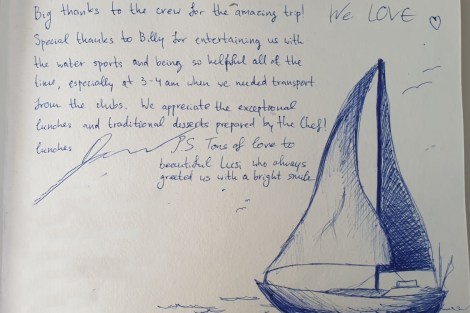 Big thanks to the crew for the amazing trip! We LOVE ♡
Special thanks to Billy for entertaining us with
the water sports and being so helpful all of the
time, especially at 3-4am when we needed transport
from the clubs. We appreciate the exceptional
lunches and traditional desserts prepared by the Chef!
lunches P.S. Tons of love to
beautiful Lusi who always
greeted us with a bright smile